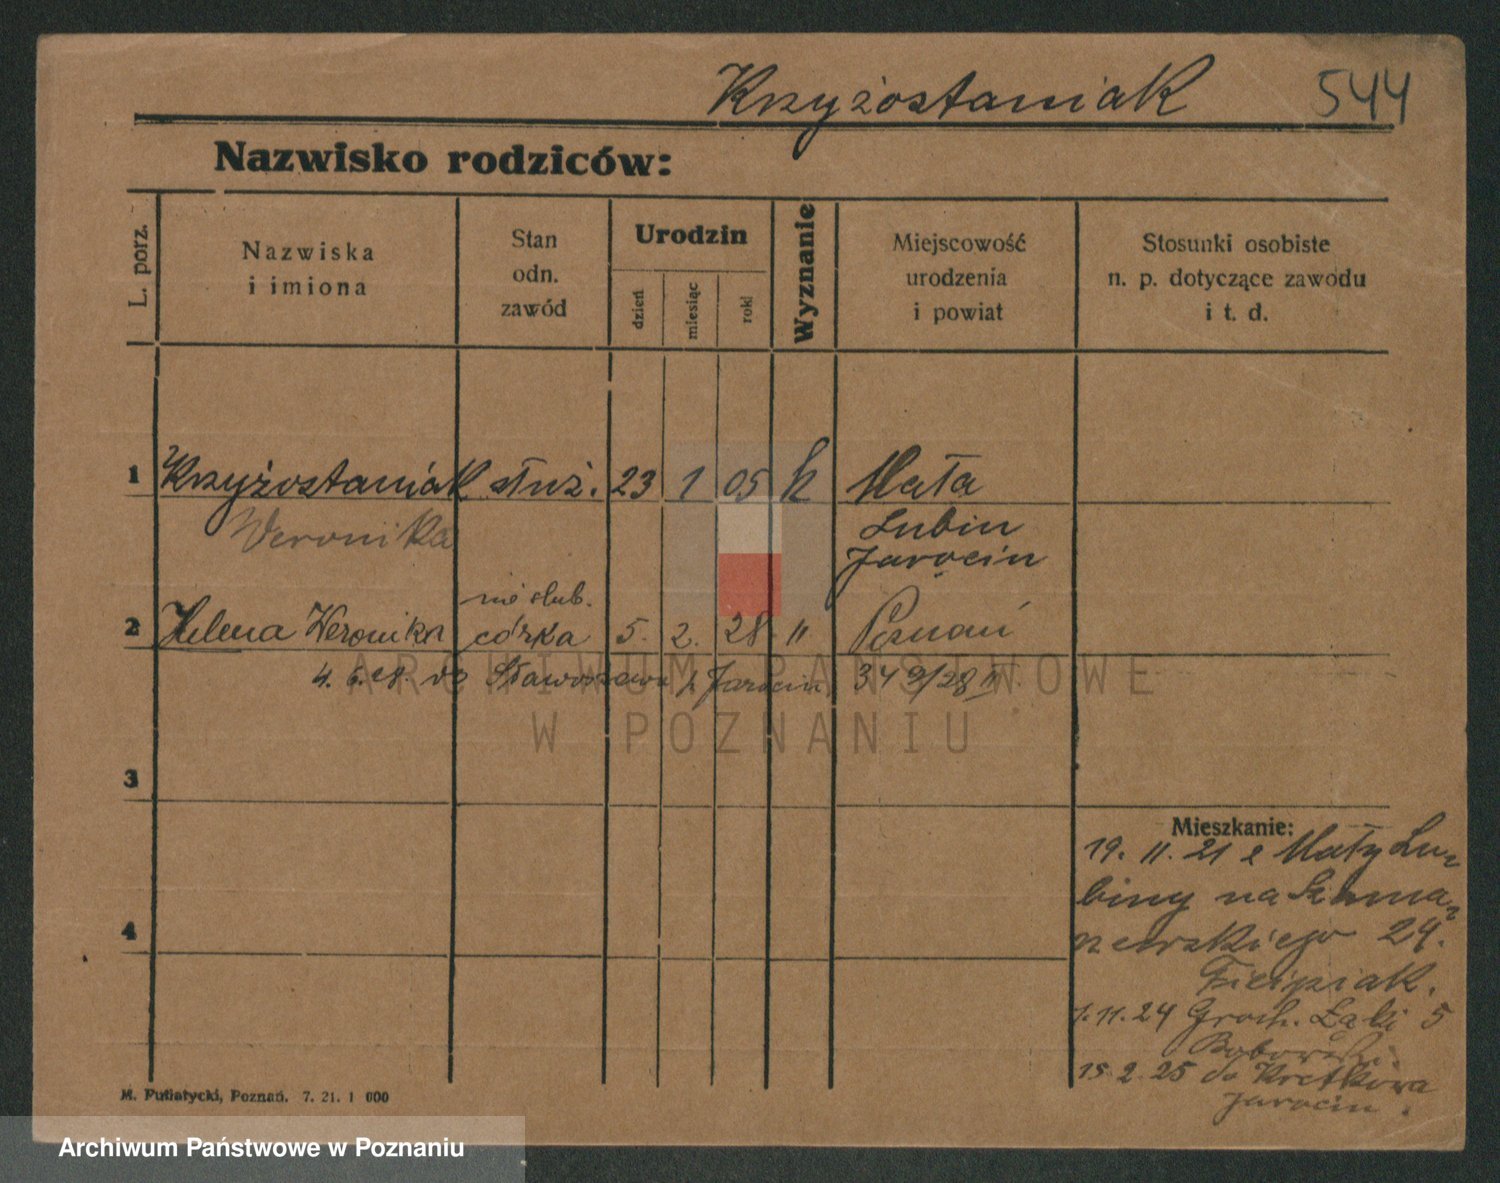 Krzyżostaniak 544
Nazwisko rodziców:
L. porz.
Nazwiska
i imiona
Stan
odn.
zawód
Urodzin
dzień
miesiąc
rok
Wyznanie
Miejscowość
urodzenia
i powiat
Stosunki osobiste
n. p. dotyczące zawodu
i t. d.
1 Krzyżostaniak służ. 23 1 05 k Mała
Weronika Lubin
Jarocin
nieślub.
2 Helena Weronika córka 5. 2. 28 " Poznań
4. 6. 28. do Sławoszewa p. Jarocin 349/28 II
ARCHIWUM PAŃSTWOWE
W POZNANIU
3
4
Mieszkanie:
19. 11. 21 z Mały Lu-
biny na
24.
Ficipiak.
1. 11. 24 Groch. Łąki 5
15. 2. 25 do Kretkowa
Jarocin.
M. Putiatycki, Poznań. 7. 21. 1 000
Archiwum Państwowe w Poznaniu